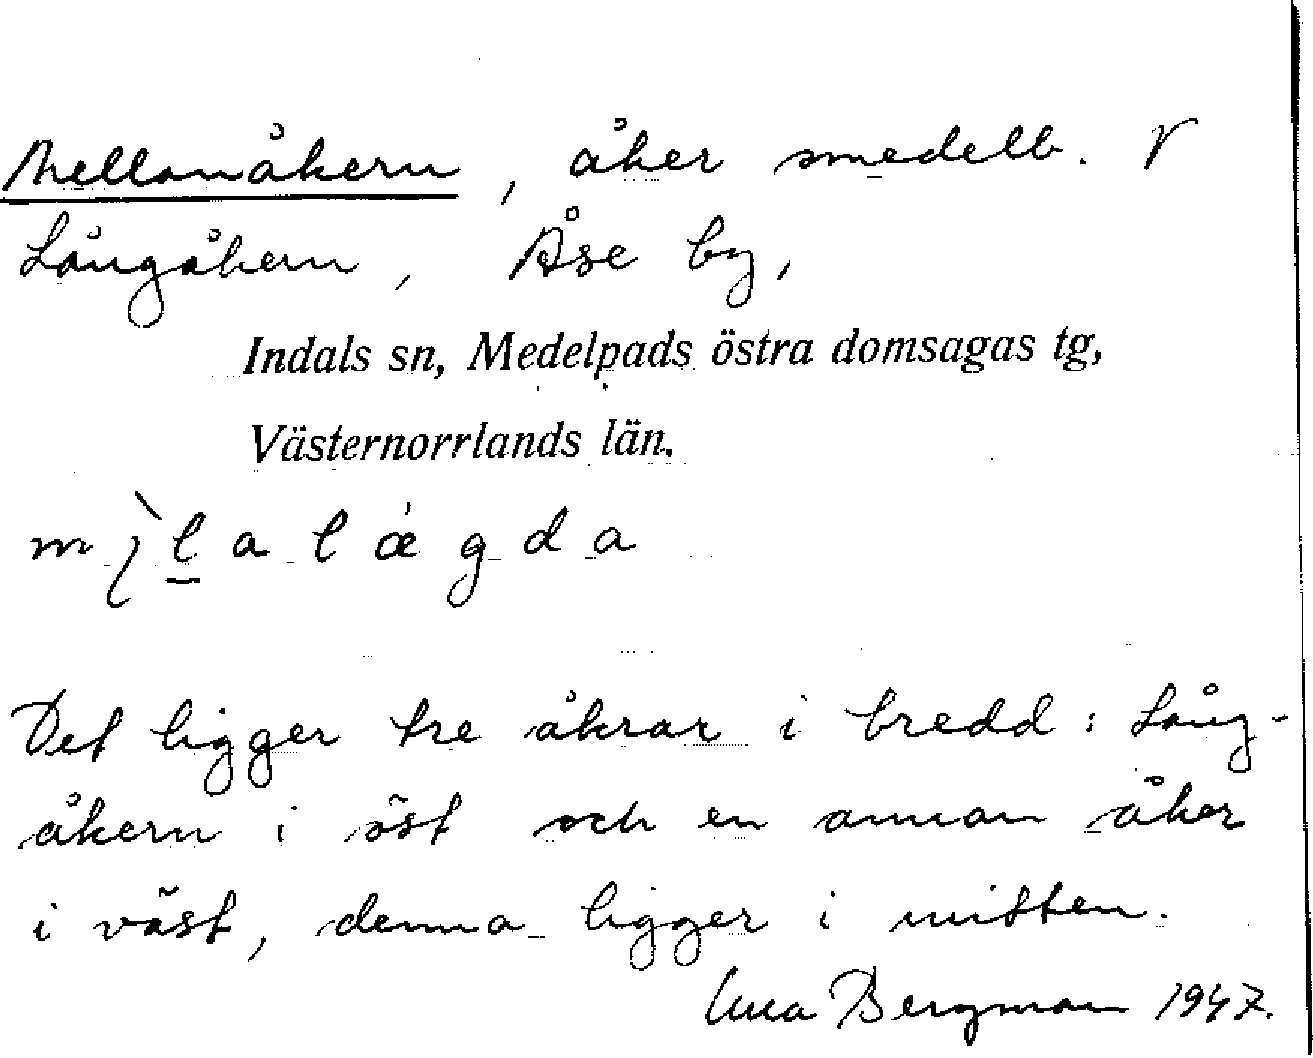 Mellanåkern, åker medelb. V
Långåkern, Åse by,
Indals sn, Medelpads östra domsagas tg,
Västernorrlands län.
Det ligger tre åkrar i bredd: Lång-
åkern i öst och en annan åker
i väst, denna ligger i mitten.
Bergman 1947.